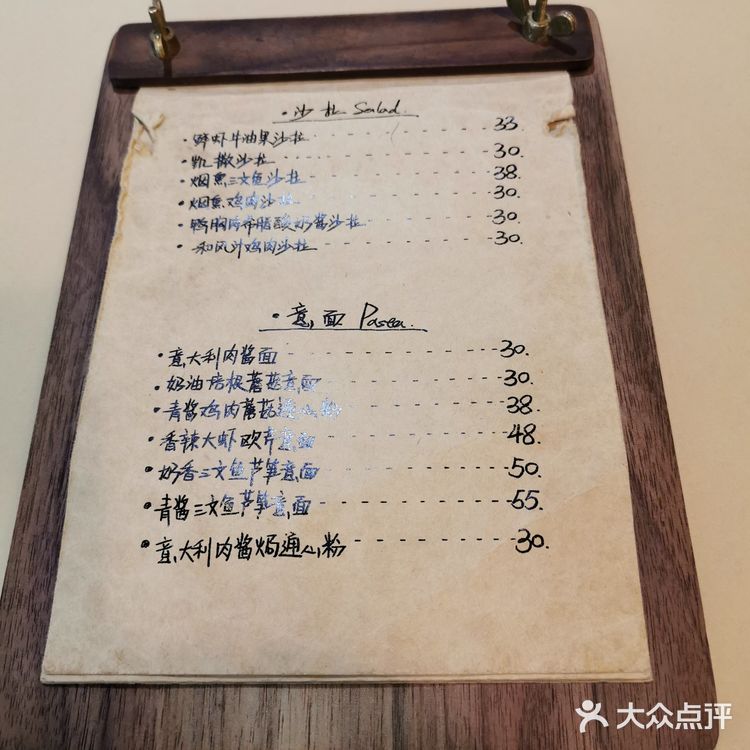 ·沙拉 Salad.
·鲜虾牛油果沙拉 33.
·凯撒沙拉 30.
·烟熏三文鱼沙拉 38.
·烟熏鸡肉沙拉 30.
·鸭胸肉希腊酸奶酱沙拉 30.
·和风汁鸡肉沙拉 30.
·意面 Pasta.
·意大利肉酱面 30.
·奶油培根蘑菇意面 30.
·青酱鸡肉蘑菇通心粉 38.
·香辣大虾欧芹意面 48.
·奶香三文鱼芦笋意面 50.
·青酱三文鱼芦笋意面 55.
·意大利肉酱焗通心粉 30.
大众点评